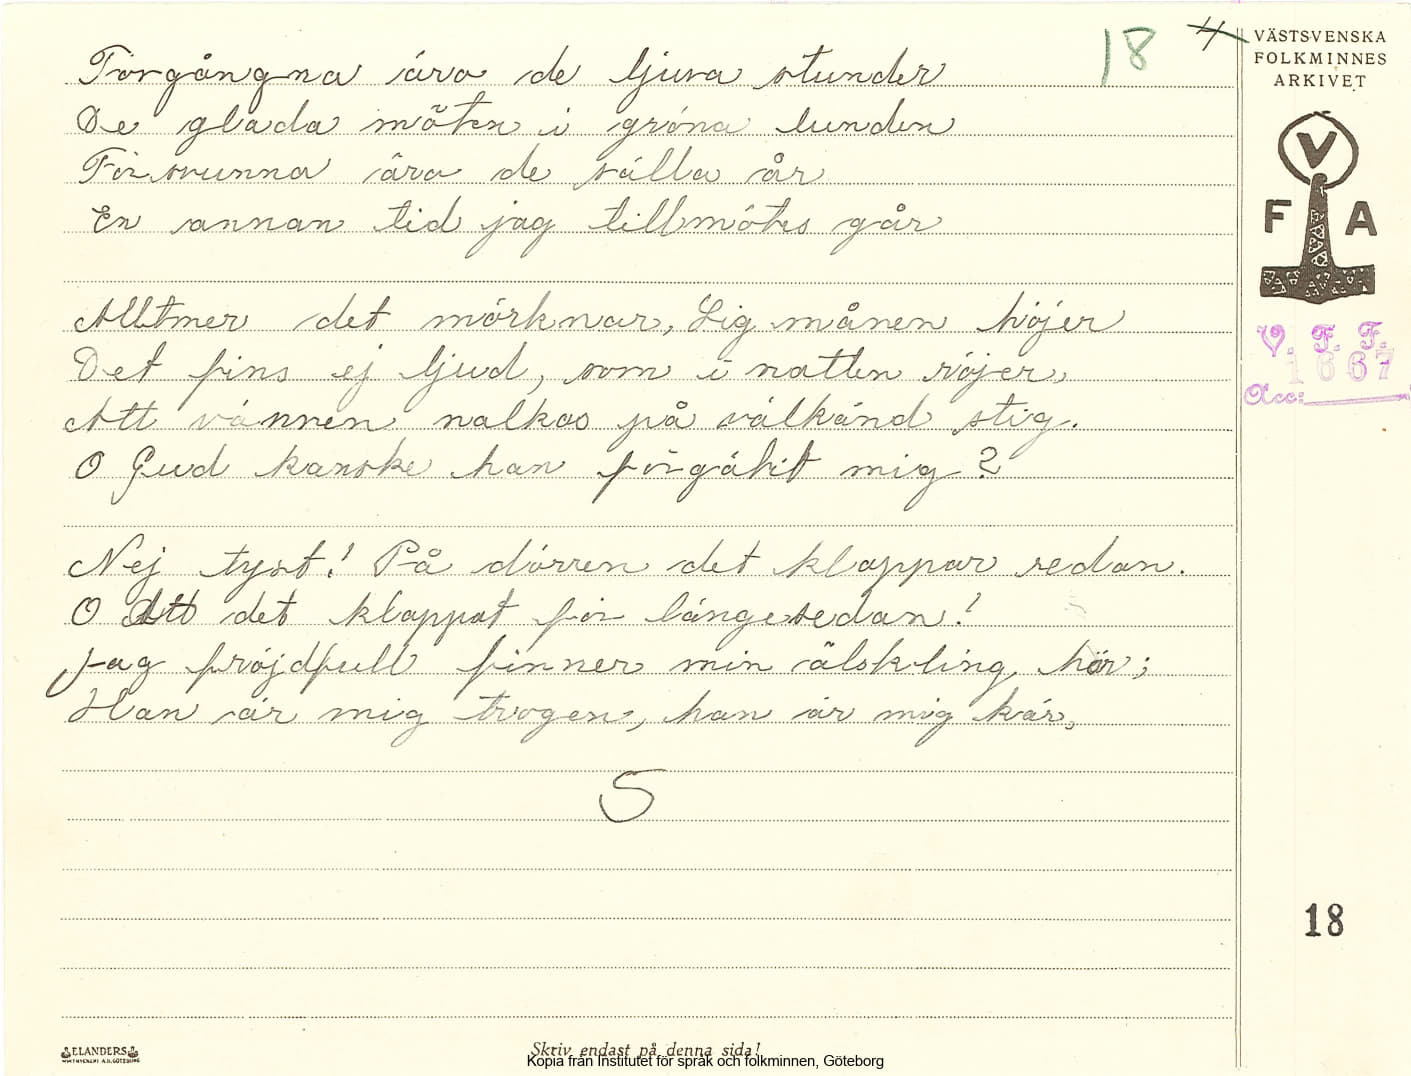 18 4
VÄSTSVENSKA
FOLKMINNES
ARKIVET
V
F A
V. F. F.
1667
Acc:
Förgångna äro de ljuva stunder
De glada möten i gröna lunden
Försvunna äro de sälla år
En annan tid jag tillmötes går
Alltmer det mörknar, Sig månen höjer
Det fins ej ljud, som i natten röjer,
Att vännen nalkas på välkänd stig.
O Gud kanske han förgätit mig?
Nej tyst! På dörren det klappar redan.
O Att det klappat för längesedan!
Jag fröjdfull finner min älskling här;
Han är mig trogen, han är mig kär,
5
18
ELANDERS
Skriv endast på denna sida!
Kopia från Institutet för språk och folkminnen, Göteborg